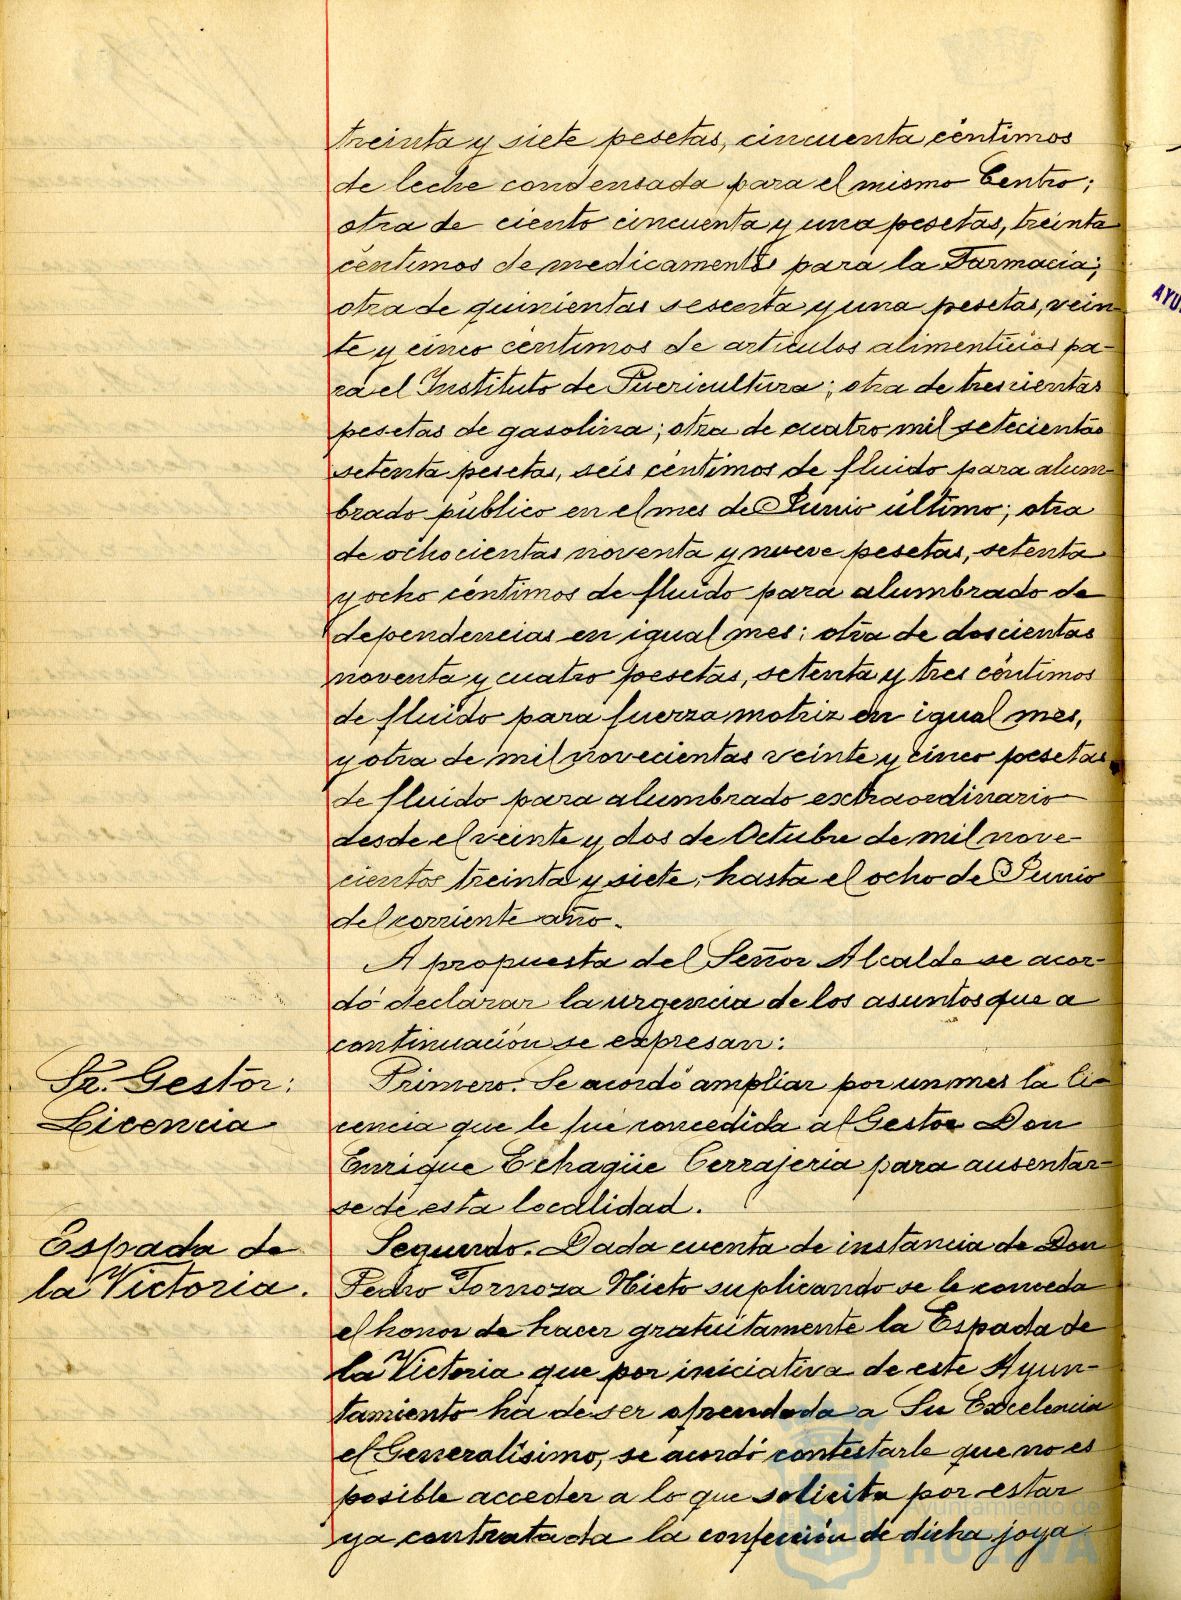 treinta y siete pesetas, cincuenta céntimos
de leche condensada para el mismo Centro;
otra de ciento cincuenta y una pesetas, treinta
céntimos de medicamentos para la Farmacia;
otra de quinientas sesenta y una pesetas, vein-
te y cinco céntimos de artículos alimenticios pa-
ra el Instituto de Puericultura; otra de trescientas
pesetas de gasolina; otra de cuatro mil setecientas
setenta pesetas, seis céntimos de fluido para alum-
brado público en el mes de Junio último; otra
de ochocientas noventa y nueve pesetas, setenta
y ocho céntimos de fluido para alumbrado de
dependencias en igual mes; otra de doscientas
noventa y cuatro pesetas, setenta y tres céntimos
de fluido para fuerza motriz en igual mes,
y otra de mil novecientas veinte y cinco pesetas
de fluido para alumbrado extraordinario
desde el veinte y dos de Octubre de mil nove-
cientos treinta y siete, hasta el ocho de Junio
del corriente año.
A propuesta del Señor Alcalde se acor-
dó declarar la urgencia de los asuntos que a
continuación se expresan:
Sr. Gestor:
Licencia
Primero. Se acordó ampliar por un mes la li-
cencia que le fué concedida al Gestor Don
Enrique Echagüe Cerrajeria para ausentar-
se de esta localidad.
Espada de
la Victoria.
Segundo. Dada cuenta de instancia de Don
Pedro Tornoza Nieto suplicando se le conceda
el honor de hacer gratuitamente la Espada de
la Victoria que por iniciativa de este Ayun-
tamiento ha de ser ofrendada a Su Excelencia
el Generalísimo, se acordó contestarle que no es
posible acceder a lo que solicita por estar
ya contratada la confección de dicha joya.
AYU
Ayuntamiento de
HUELVA